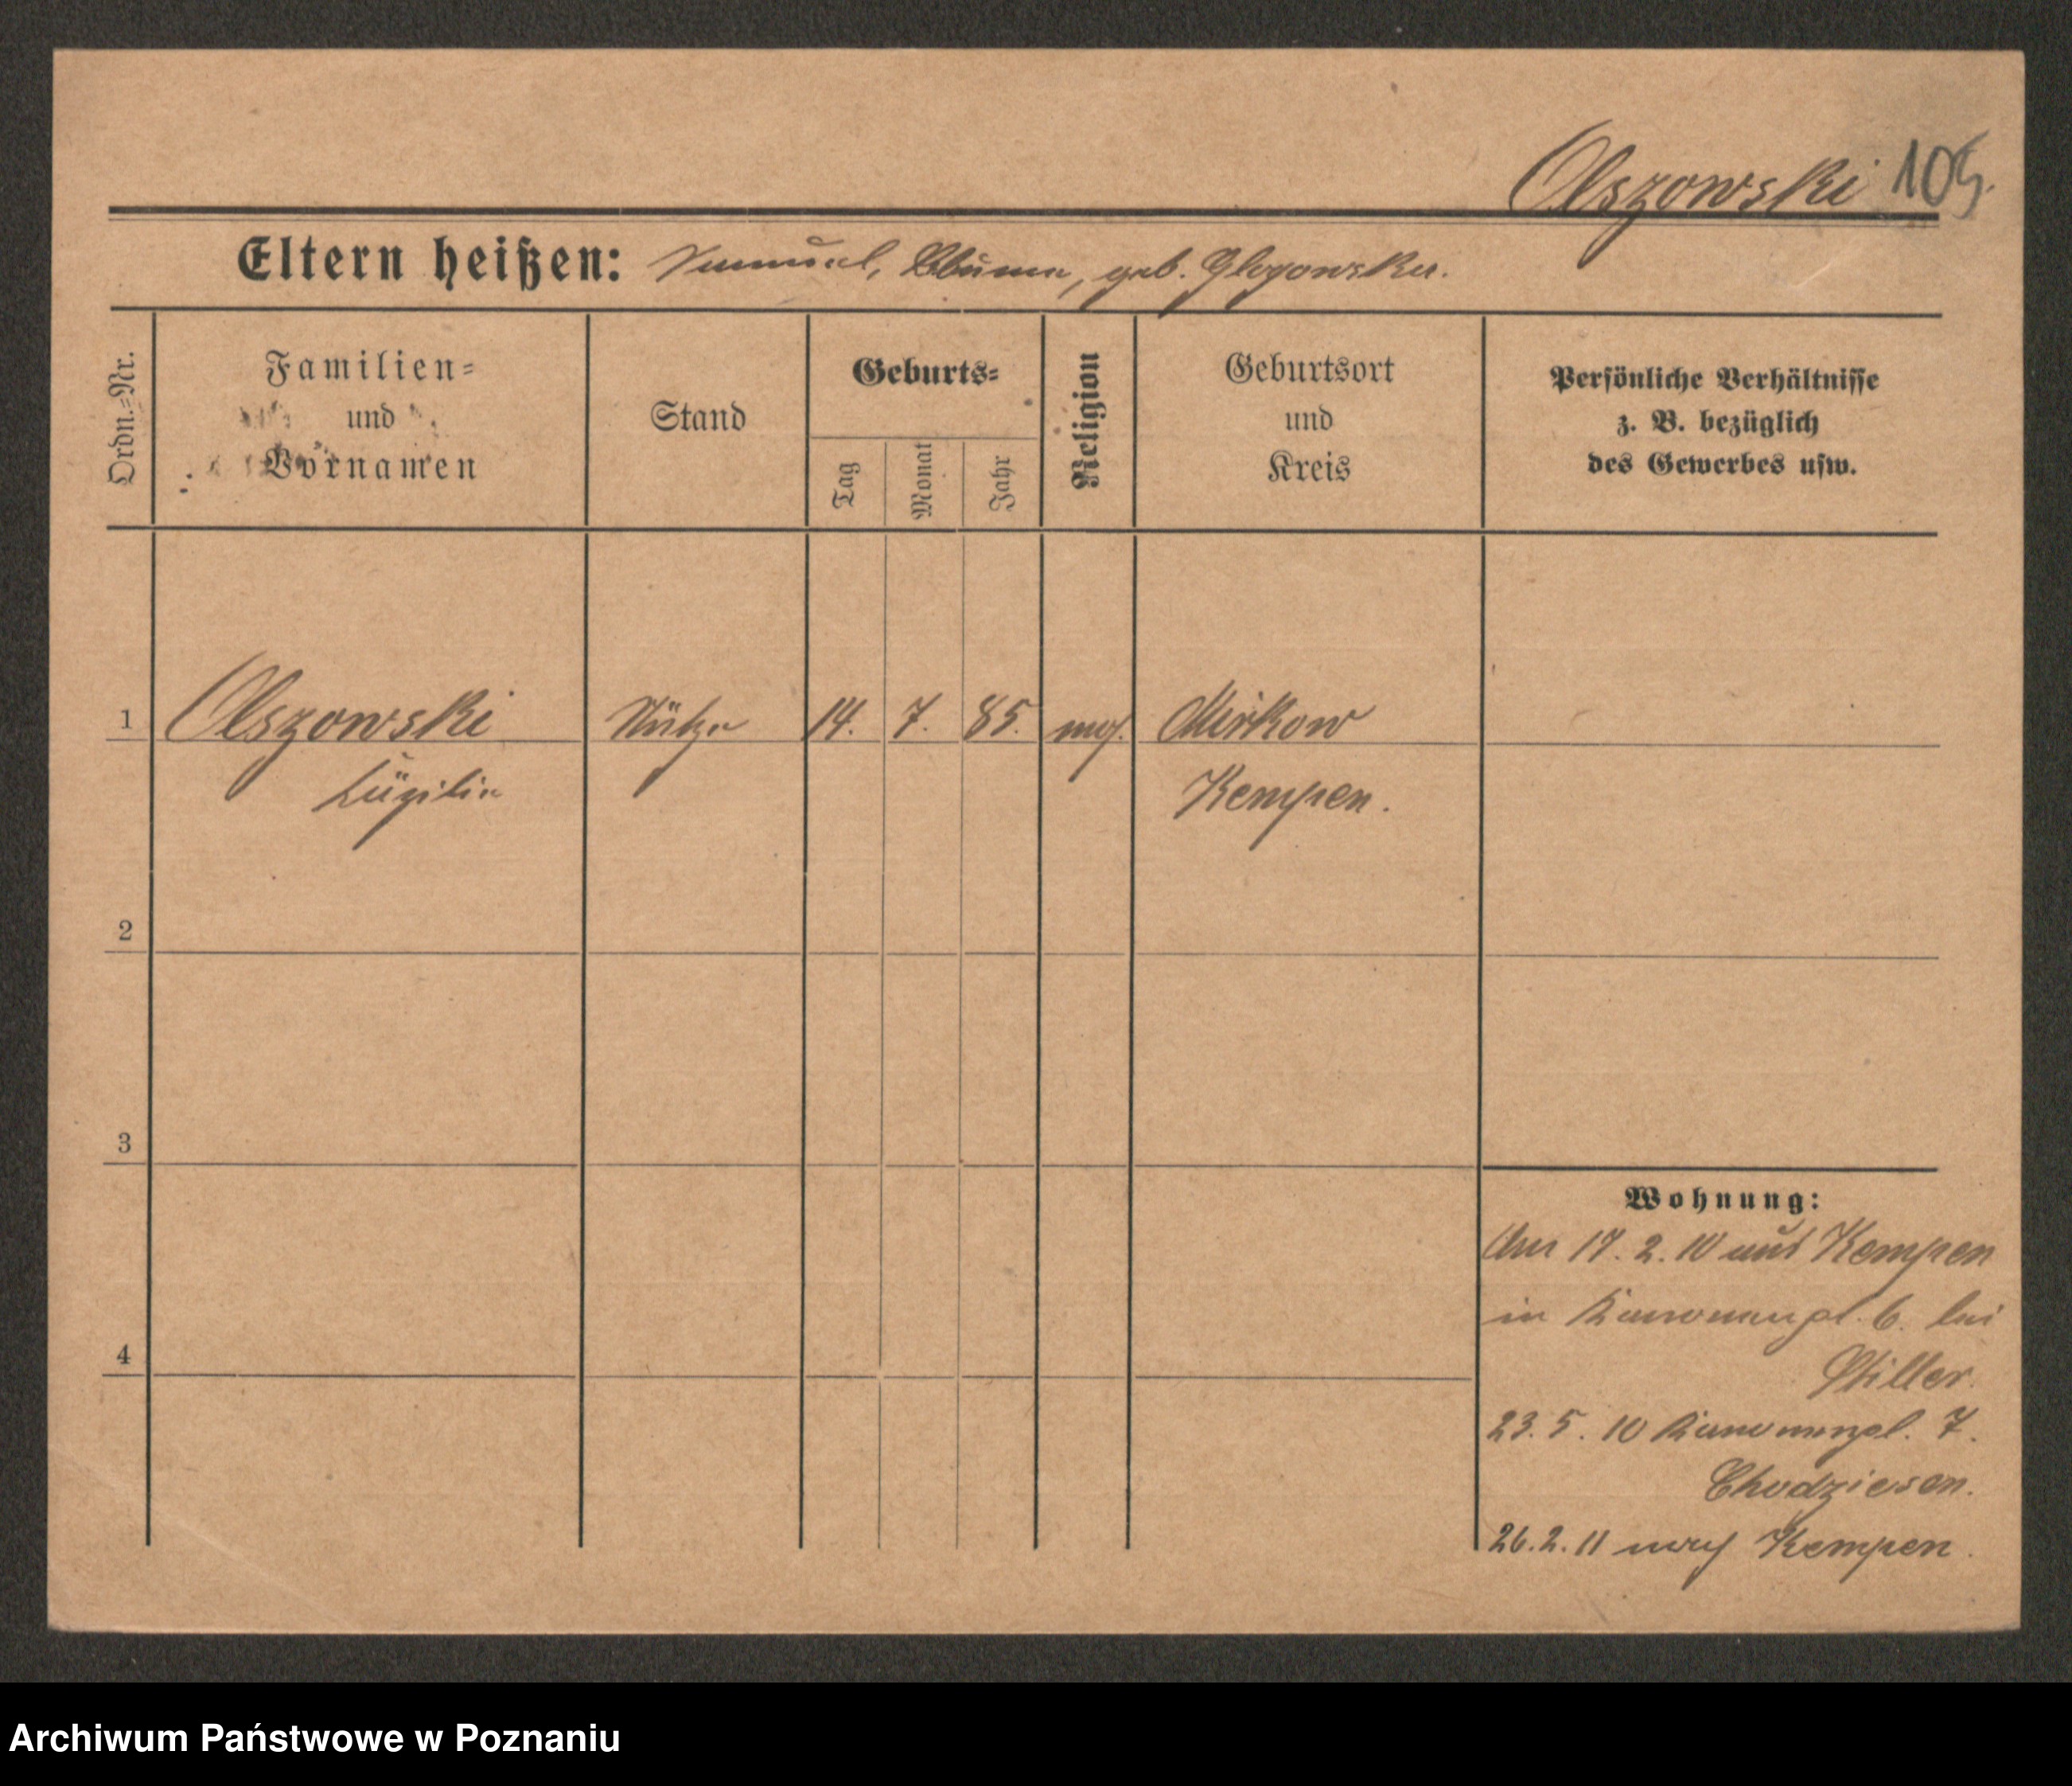 Olszowski 105.
Eltern heißen: Samuel, Bluma, geb. Glogowska.
Ordn.=Nr.
Familien=
und
Vornamen
Stand
Geburts=
Tag
Monat
Jahr
Religion
Geburtsort
und
Kreis
Persönliche Verhältnisse
z. B. bezüglich
des Gewerbes usw.
1 Olszowski Stütze 14. 7. 85. mos. Mirkow
Kempen.
2
3
4
Wohnung:
17. 2. 10 aus Kempen
in Kanonenpl. 6. bei
Stiller.
23. 5. 10 Kanonenpl. 7.
Chodziesen.
26. 2. 11 nach Kempen.
Archiwum Państwowe w Poznaniu